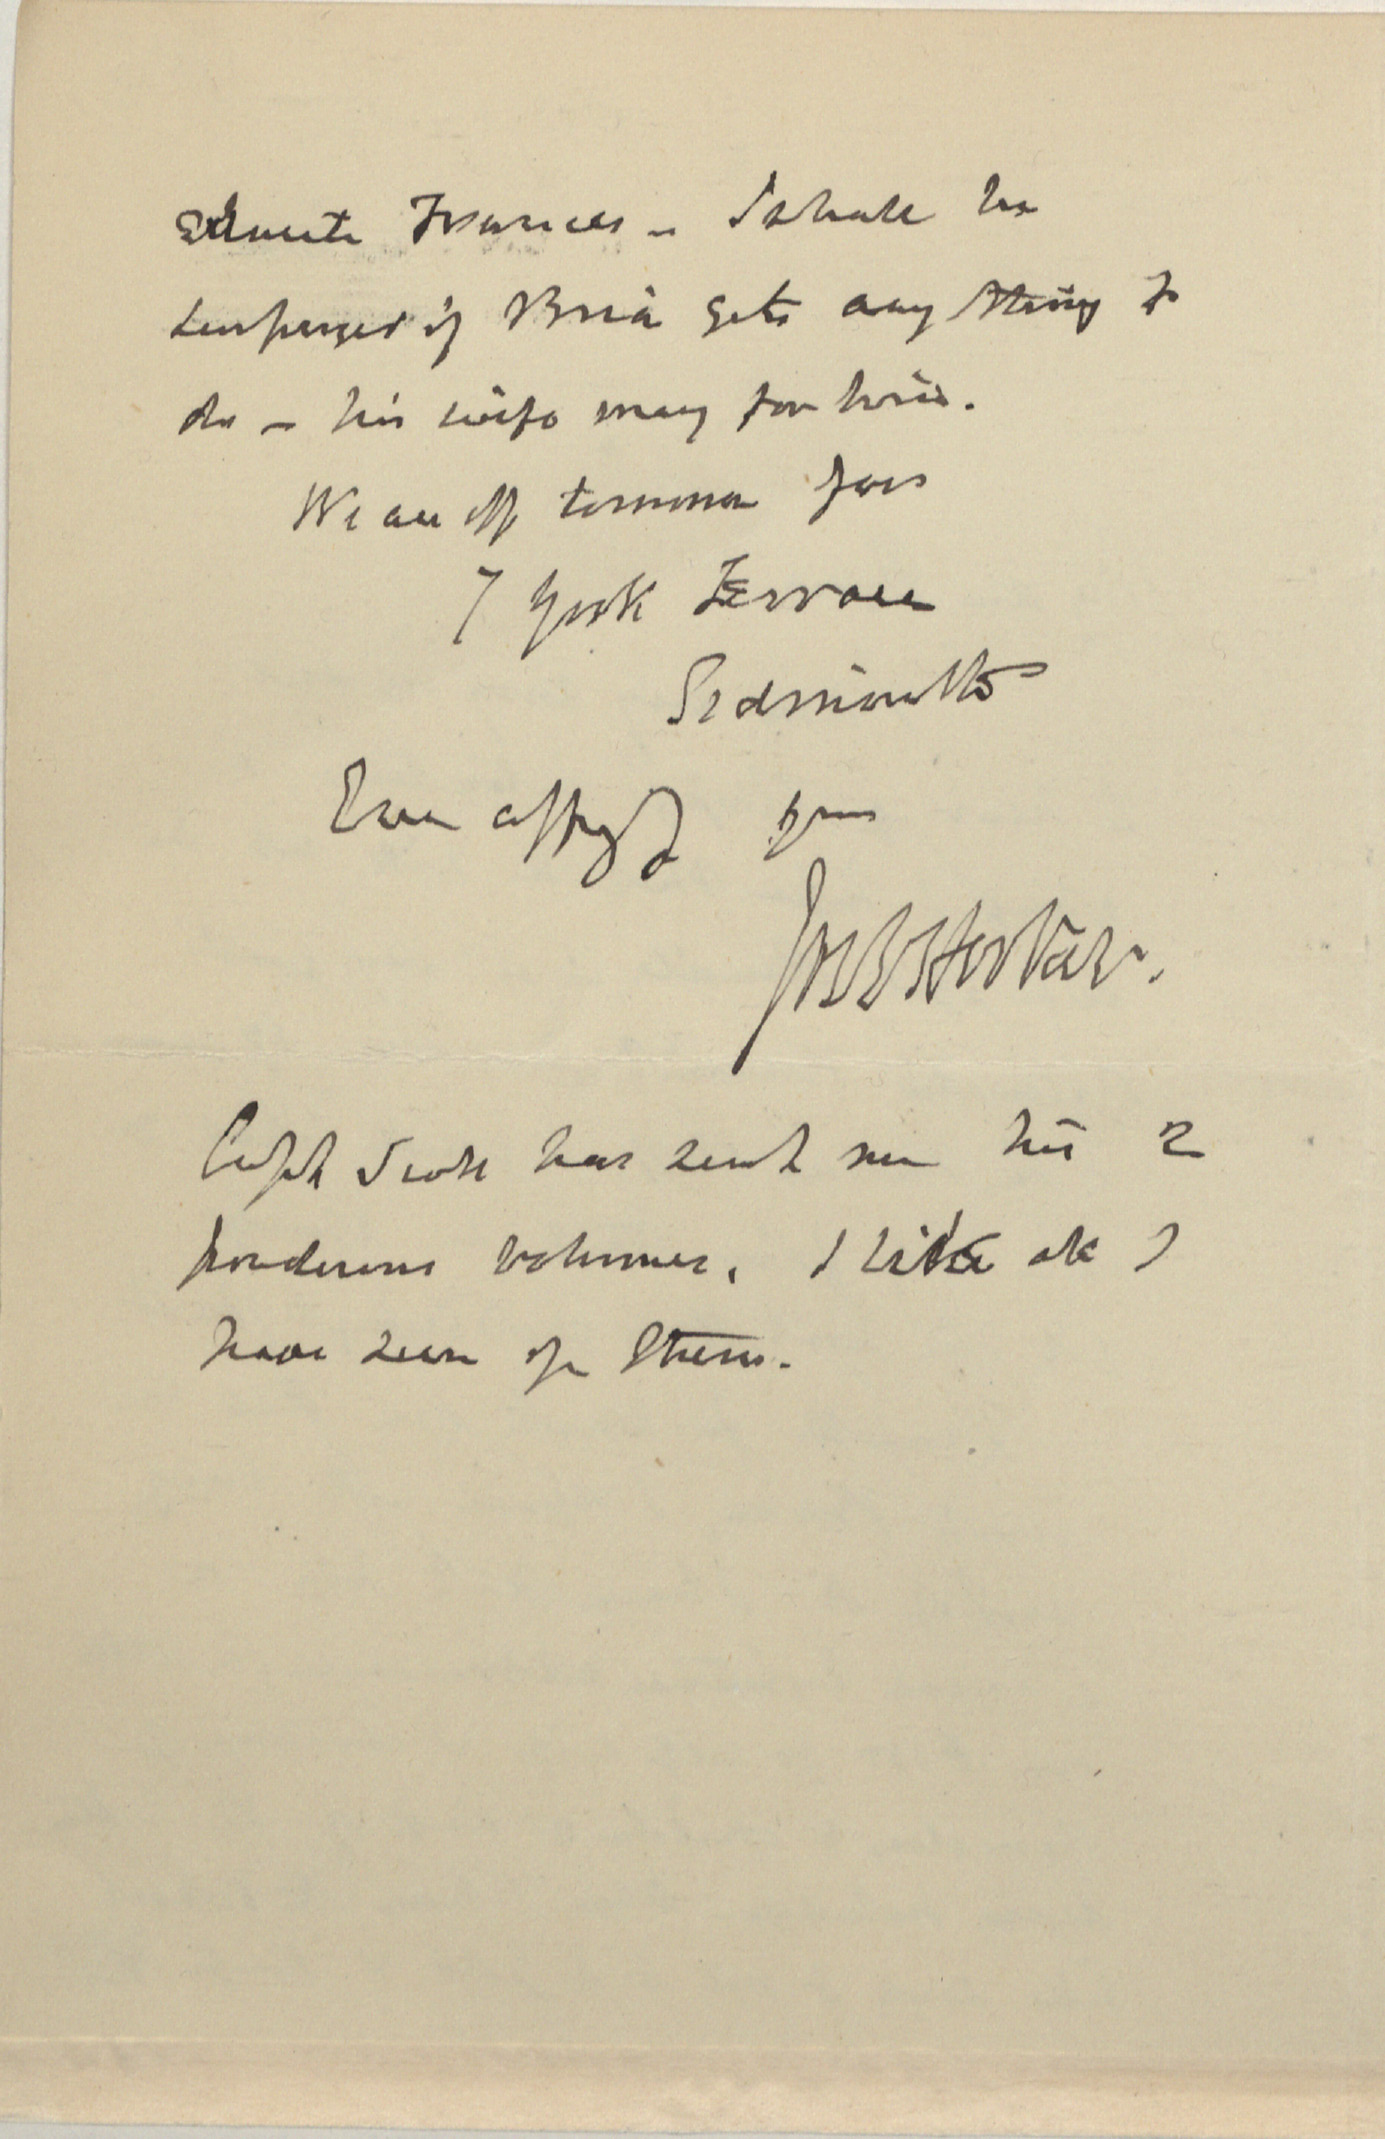 educate Frances — I shall be
surprised if Brian gets any thing to
do — his wife may for him.
We are off tomorrow for
7 York Terrace
Sidmouth
Ever affy yours
Jos D Hooker.
Capt Scott has sent me his 2
ponderous volumes. I like all I
have seen of them.